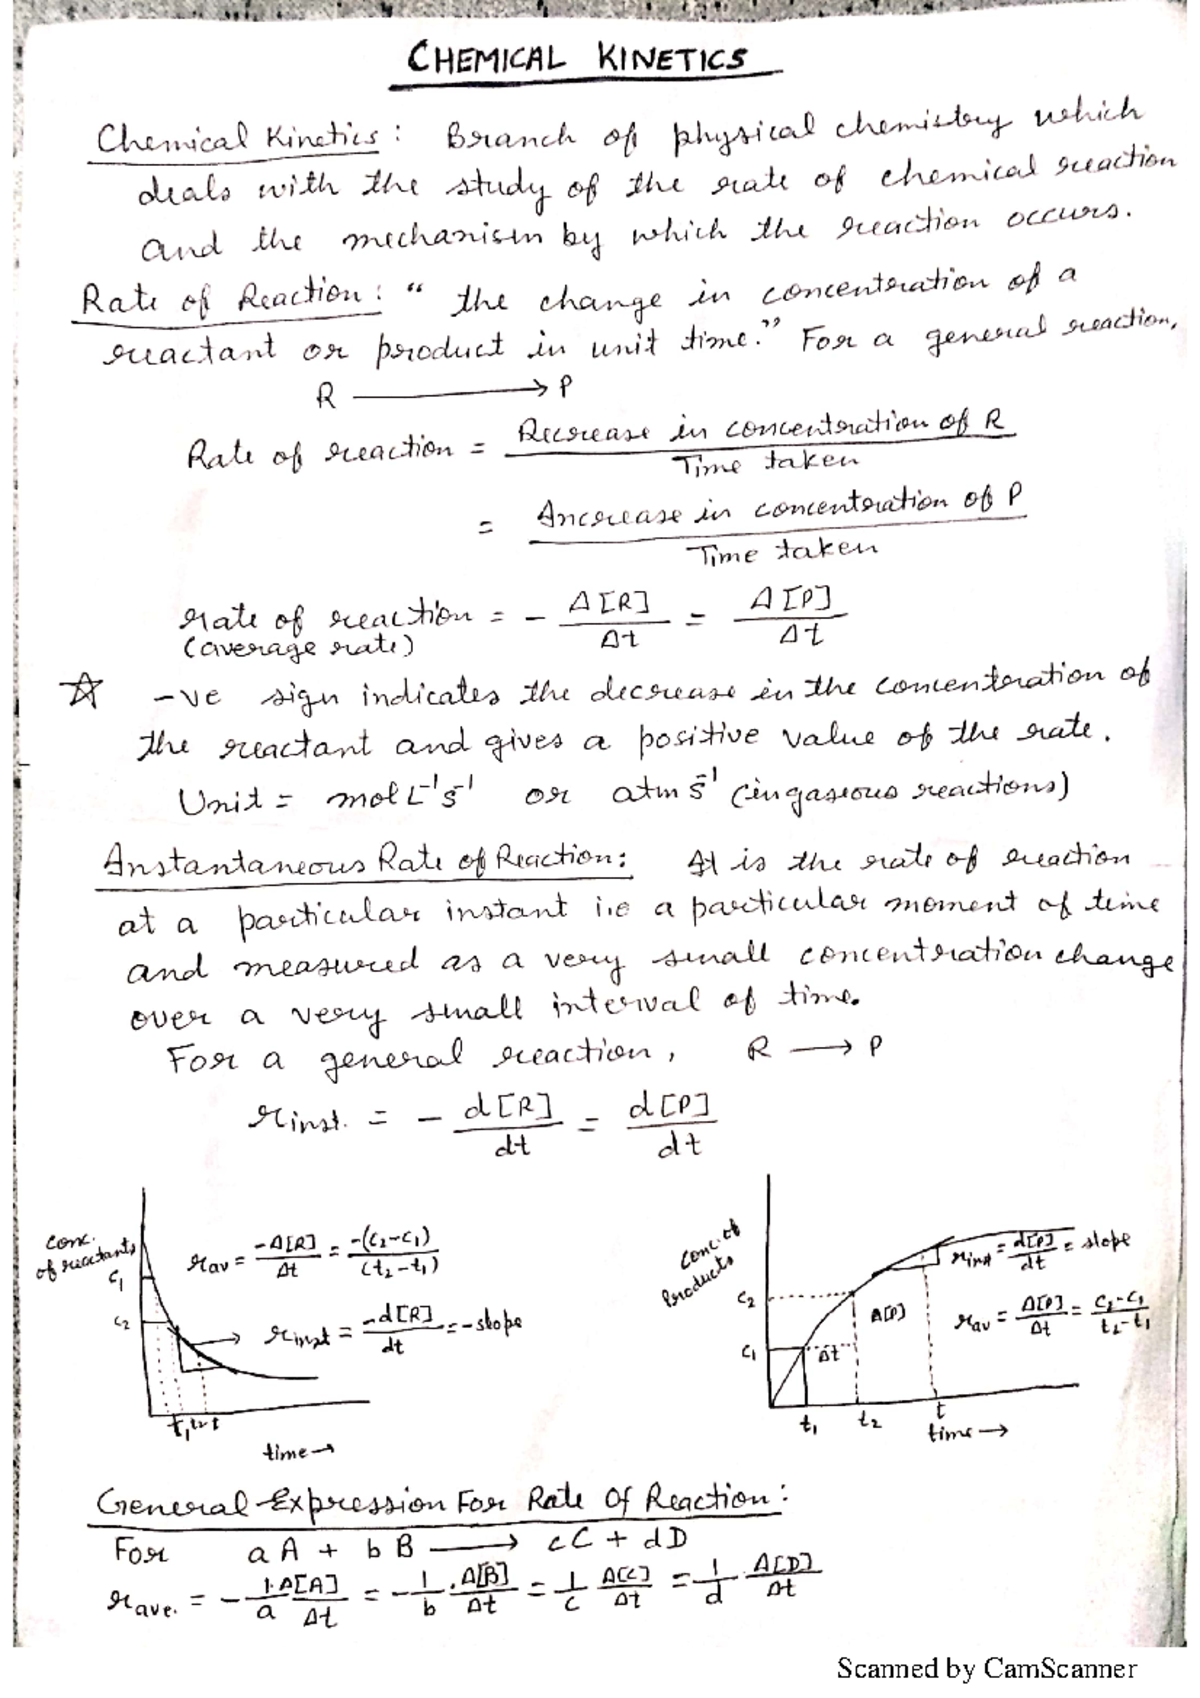 CHEMICAL KINETICS
Chemical Kinetics: Branch of physical chemistry which
deals with the study of the rate of chemical reaction
and the mechanism by which the reaction occurs.
Rate of Reaction: "the change in concentration of a
reactant or product in unit time." For a general reaction,
R ⟶ P
Rate of reaction = Decrease in concentration of R / Time taken
= Increase in concentration of P / Time taken
rate of reaction = - Δ[R]/Δt = Δ[P]/Δt
(average rate)
☆ -ve sign indicates the decrease in the concentration of
the reactant and gives a positive value of the rate.
Unit = mol L⁻¹ s⁻¹ or atm s⁻¹ (in gaseous reactions)
Instantaneous Rate of Reaction: It is the rate of reaction
at a particular instant i.e a particular moment of time
and measured as a very small concentration change
over a very small interval of time.
For a general reaction, R ⟶ P
r inst. = - d[R]/dt = d[P]/dt
conc. of reactants
C₁
C₂
r av = -Δ[R]/Δt = -(C₂-C₁)/(t₂-t₁)
r inst = -d[R]/dt = -slope
t₁ t₂ t
time →
conc. of Products
C₂
C₁
Δ[P]
Δt
r inst = d[P]/dt = slope
r av = Δ[P]/Δt = C₂-C₁/t₂-t₁
t₁ t₂ t
time →
General Expression For Rate Of Reaction:
For aA + bB ⟶ cC + dD
r ave. = - 1/a . Δ[A]/Δt = - 1/b . Δ[B]/Δt = 1/c Δ[C]/Δt = 1/d . Δ[D]/Δt
Scanned by CamScanner